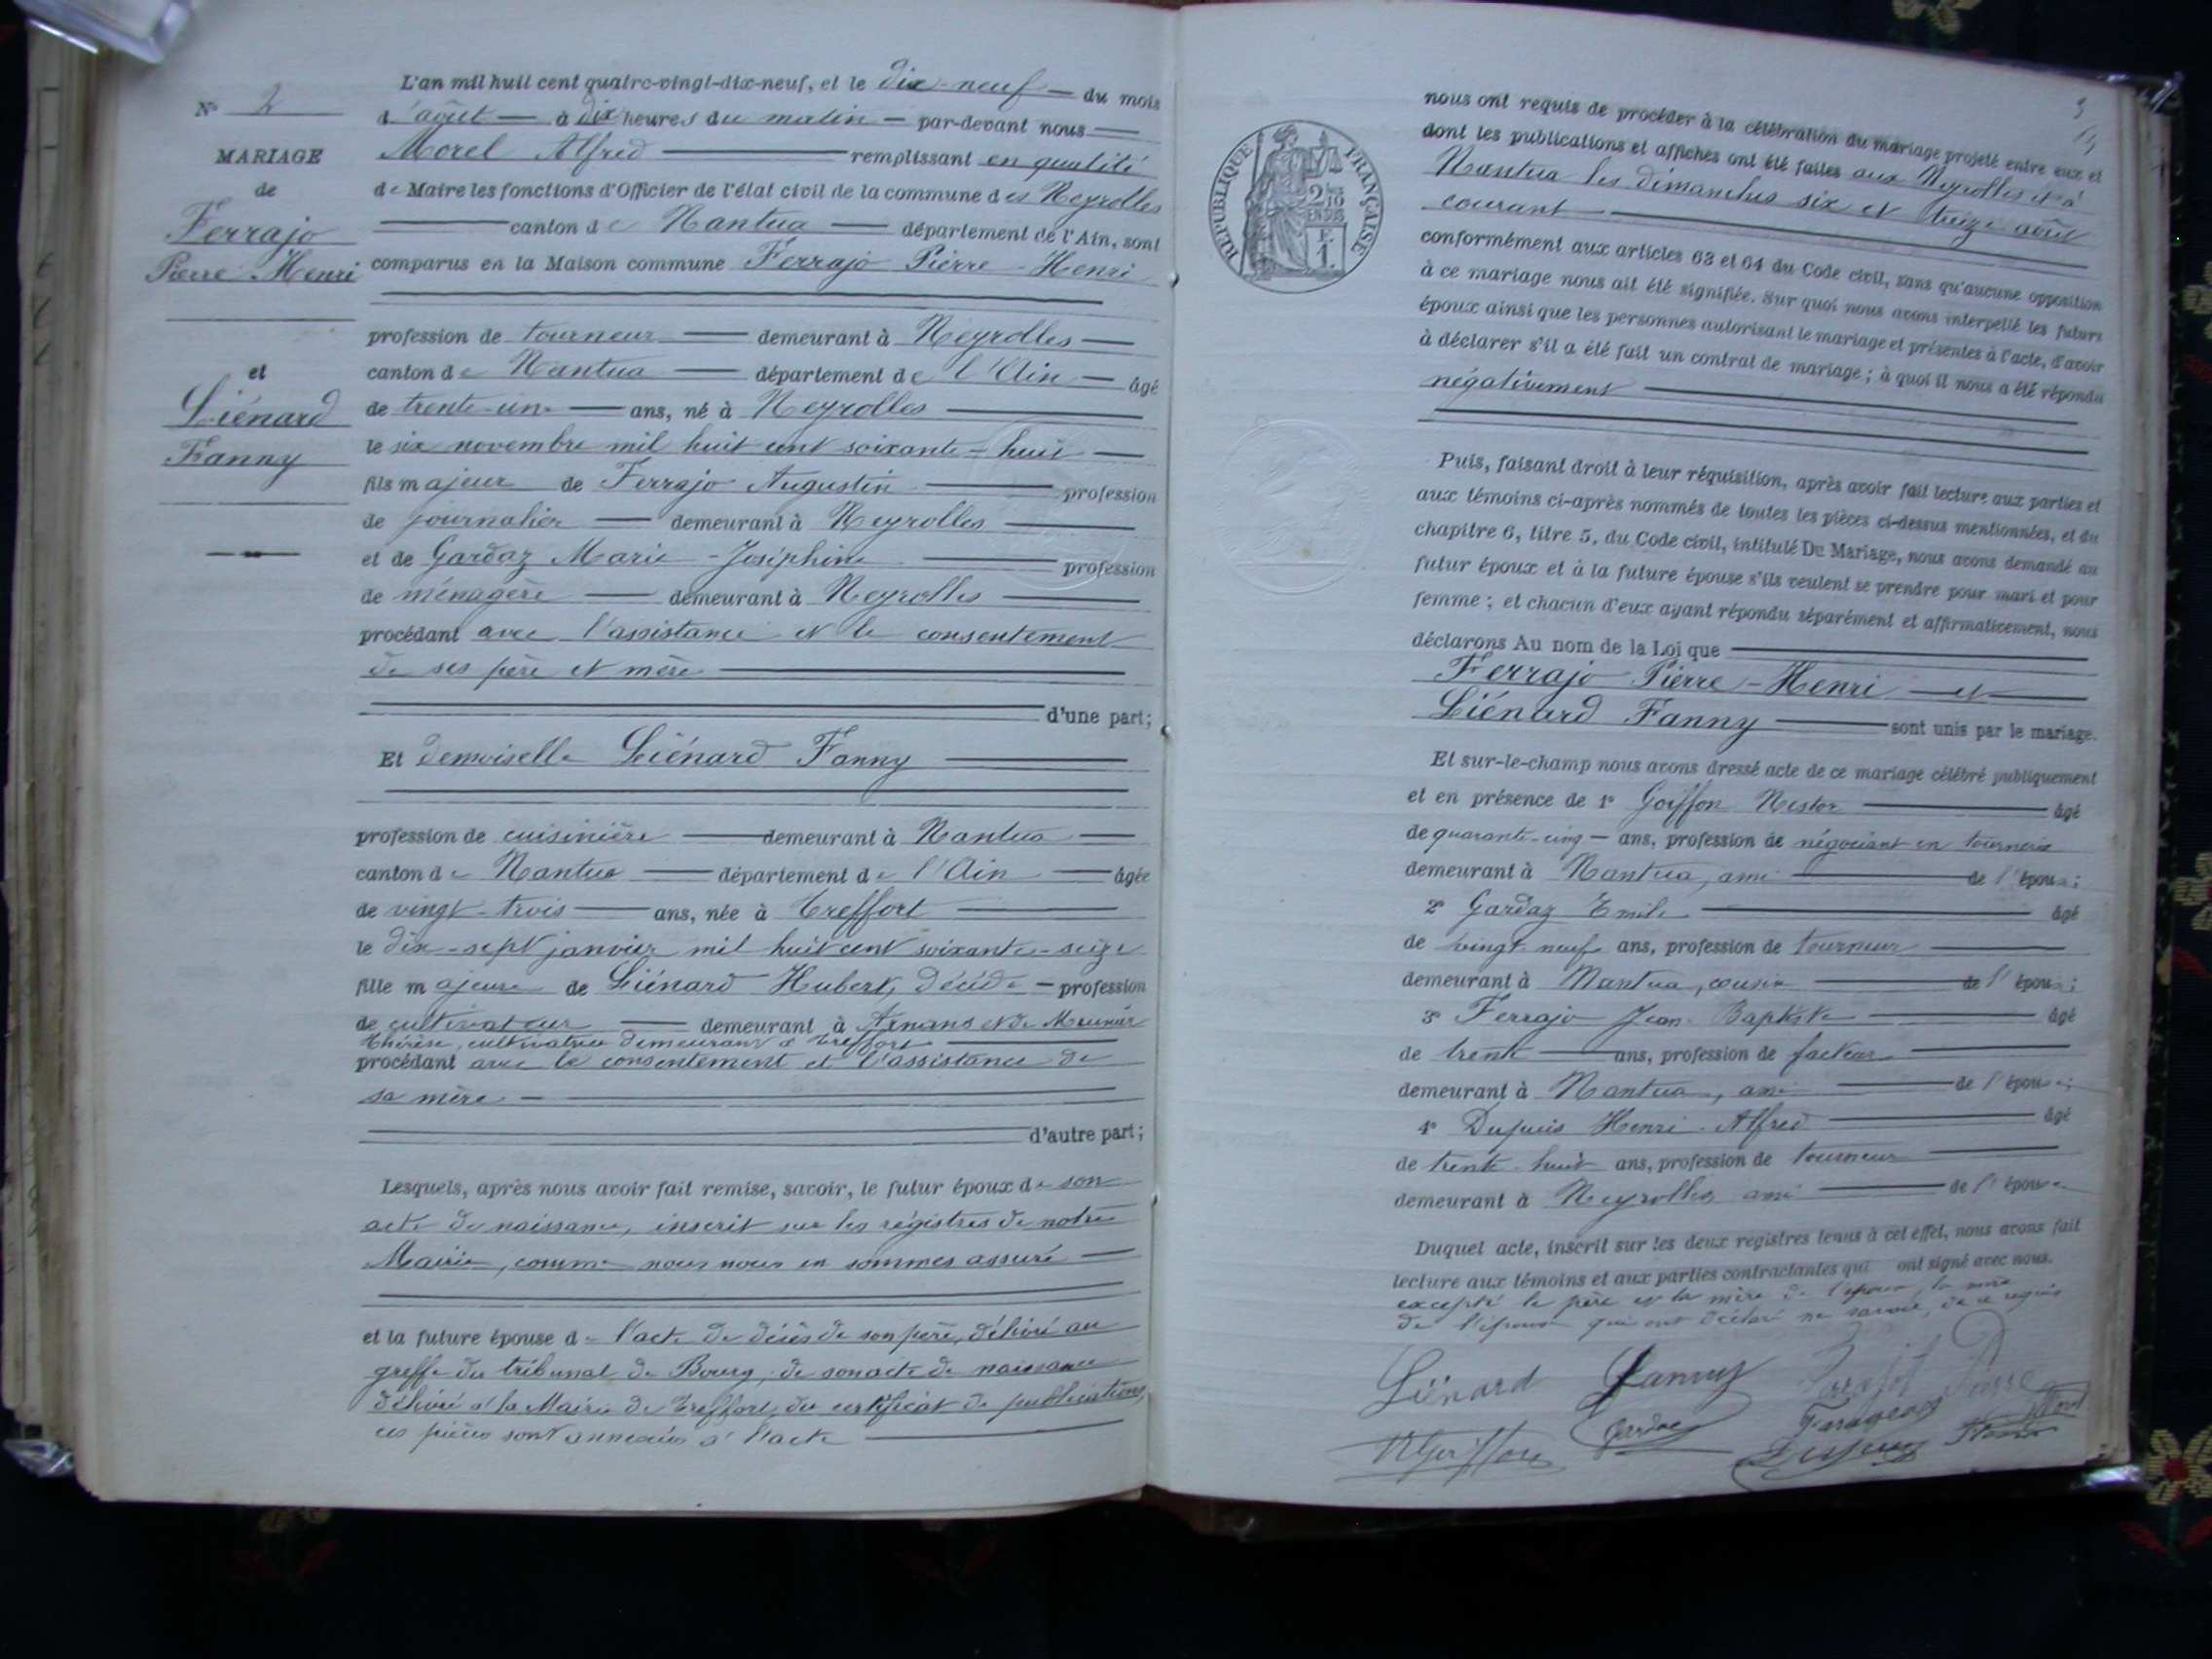 L'an mil huit cent quatre-vingt-dix-neuf, et le dix-neuf du mois
d'août à dix heures du matin par-devant nous
Morel Alfred remplissant en qualité
de Maire les fonctions d'Officier de l'état civil de la commune des Neyrolles
canton de Nantua département de l'Ain, sont
comparus en la Maison commune Ferrajo Pierre-Henri
profession de tourneur demeurant à Neyrolles
canton de Nantua département de l'Ain âgé
de trente-un ans, né à Neyrolles
le six novembre mil huit cent soixante-huit
fils majeur de Ferrajo Augustin profession
de journalier demeurant à Neyrolles
et de Gardaz Marie-Joséphine profession
de ménagère demeurant à Neyrolles
procédant avec l'assistance et le consentement
de ses père et mère
d'une part;
Et demoiselle Liénard Fanny
profession de cuisinière demeurant à Nantua
canton de Nantua département de l'Ain âgée
de vingt-trois ans, née à Treffort
le dix-sept janvier mil huit cent soixante-seize
fille majeure de Liénard Hubert, décédé profession
de cultivateur demeurant à et de
Thérèse, cultivatrice demeurant à Treffort
procédant avec le consentement et l'assistance de
sa mère
d'autre part;
Lesquels, après nous avoir fait remise, savoir, le futur époux de son
acte de naissance, inscrit sur les régistres de notre
Mairie, comme nous nous en sommes assuré
et la future épouse de l'acte de décès de son père, délivré au
greffe du tribunal de Bourg, de son acte de naissance
délivré à la Mairie de Treffort, du certificat de publications,
ces pièces sont annexées à l'acte
N° 2
MARIAGE
de
Ferrajo
Pierre Henri
et
Liénard
Fanny
3
REPUBLIQUE FRANÇAISE
nous ont requis de procéder à la célébration du mariage projeté entre eux et
dont les publications et affiches ont été faites aux Neyrolles et à
Nantua les dimanches six et treize août
courant
conformément aux articles 63 et 64 du Code civil, sans qu'aucune opposition
à ce mariage nous ait été signifiée. Sur quoi nous avons interpellé les futurs
époux ainsi que les personnes autorisant le mariage et présentes à l'acte, d'avoir
à déclarer s'il a été fait un contrat de mariage; à quoi il nous a été répondu
négativement
Puis, faisant droit à leur réquisition, après avoir fait lecture aux parties et
aux témoins ci-après nommés de toutes les pièces ci-dessus mentionnées, et du
chapitre 6, titre 5, du Code civil, intitulé Du Mariage, nous avons demandé au
futur époux et à la future épouse s'ils veulent se prendre pour mari et pour
femme; et chacun d'eux ayant répondu séparément et affirmativement, nous
déclarons Au nom de la Loi que
Ferrajo Pierre-Henri et
Liénard Fanny sont unis par le mariage.
Et sur-le-champ nous avons dressé acte de ce mariage célébré publiquement
et en présence de 1° Goiffon Nestor âgé
de quarante-cinq ans, profession de négociant en tournerie
demeurant à Nantua, ami de l'époux;
2° Gardaz Emile âgé
de vingt neuf ans, profession de tourneur
demeurant à Nantua, cousin de l'époux;
3° Ferrajo Jean-Baptiste âgé
de trente ans, profession de facteur
demeurant à Nantua, ami de l'épouse;
4° Dupuis Henri-Alfred âgé
de trente-huit ans, profession de tourneur
demeurant à Neyrolles ami de l'épouse
Duquel acte, inscrit sur les deux registres tenus à cet effet, nous avons fait
lecture aux témoins et aux parties contractantes qui ont signé avec nous.
excepté le père et la mère de l'époux, la mère
de l'épouse qui ont déclaré ne savoir, de ce requis
Liénard Fanny Pierre
Gardaz